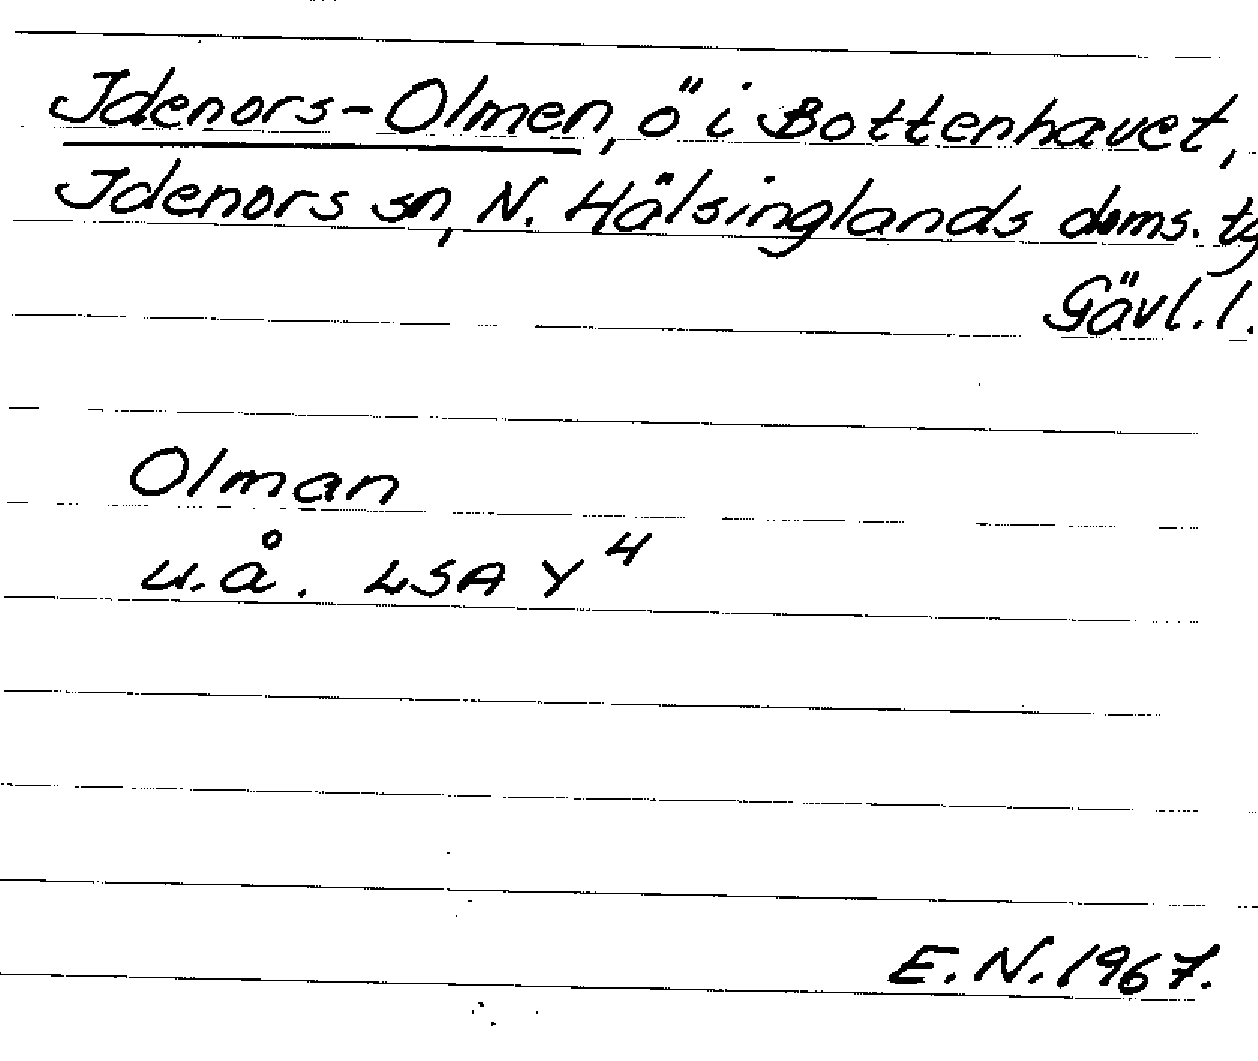 Idenors-Olmen, ö i Bottenhavet,
Idenors sn, N. Hälsinglands doms. tg
Gävl. l.
Olman
u.å. LSA Y 4
E.N. 1967.